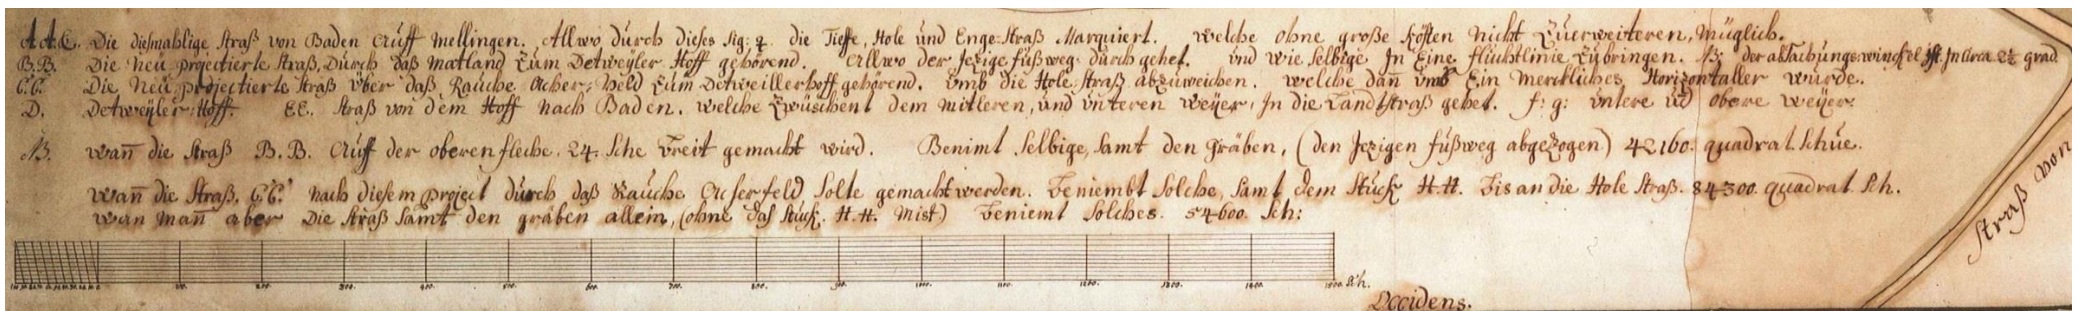 A.A.C. Die diesmahlige Straß von Baden Auff Mellingen. Allwo durch dieses Sig: die Tieffe, Hole und Enge-Straß Marquiert. welche ohne große Kösten nicht Zuerweiteren, Müglich.
B.B. Die Neü projectierte Straß, Durch daß Mattland Züm Detweyler Hoff gehörend. Allwo der Jezige füßweg durch gehet. Und wie selbige In Eine fluchtlinie Zübringen. NB: der abdachungs winckel ist In Circa 2½ grad
C.C. Die Neü projectierte Straß über daß Rauche Acher-Veld Züm Detweillerhoff gehörend. Umb die Hole Straß abzuweichen. welche dan̄ umb Ein Merckliches Horizontaller würde.
D. Detweÿler-Hoff. EE. Straß von dem Hoff nach Baden. welche Zwüschent dem Mitleren, und Unteren Weÿer, In die Landtstraß gehet. f: g: Untere ud obere weÿer.
NB. wan̄ die Straß B.B. Auff der oberen fleche. 24. Sche breit gemacht wird. Benimt selbige, samt den Gräben, (den Jezigen füßweg abgezogen) 42160. quadrat schue.
wan̄ die Straß. C.C. nach diesem project durch daß Rauche Acherfeld Solte gemacht werden. beniembt Solche, samt dem Stuck H.H. bis an die Hole Straß. 84300. quadrat Sch.
wan man̄ aber Die Straß samt den gräben allein, (ohne das Stuck. H.H. Mist) beniemt Solches. 54600. Sch:
100. 200. 300. 400. 500. 600. 700. 800. 900. 1000. 1100. 1200. 1300. 1400. 1500 Sch.
Occidens.
Straß von